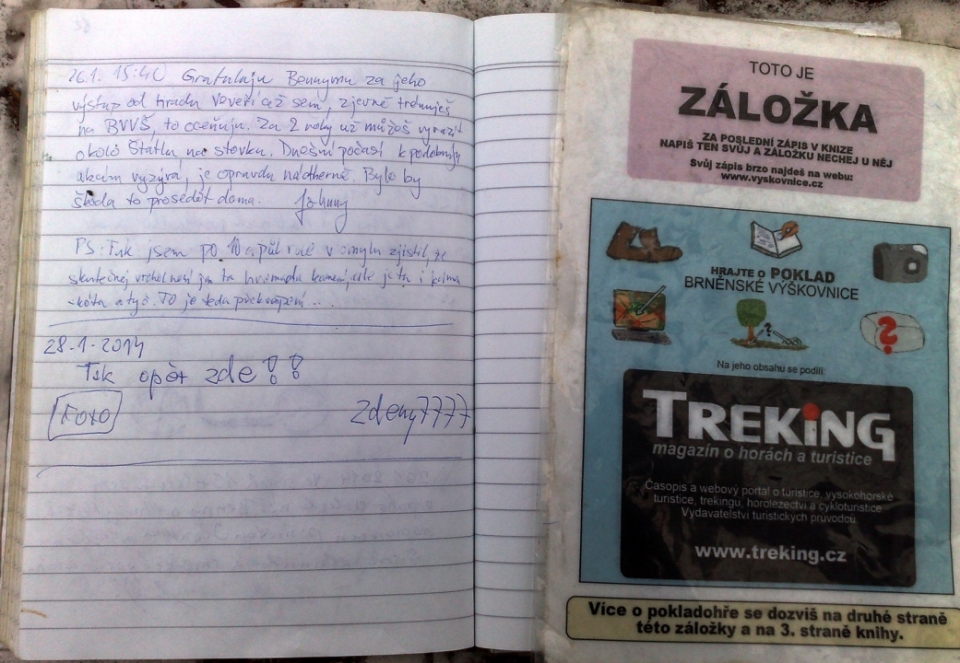 26.1. 15:40 Gratuluju Bennymu za jeho
výstup od hradu Veveří až sem, zjevně trénuješ
na BVVŠ, to oceňuju. Za 2 roky už můžeš vyrazit
okolo Statlu na stovku. Dnešní počasí k podobným
akcím vyzývá, je opravdu nádherně. Bylo by
škoda to prosedět doma. Johnny
PS: Tak jsem po 10 a půl v omylu zjistil, že
skutečný vrchol není jen ta hromada kamení, ale je tu i
kóta a tyč. To je teda překvapení...
28-1-2014
Tak opět zde!!
FOTO
zdeny7777
TOTO JE
ZÁLOŽKA
ZA POSLEDNÍ ZÁPIS V KNIZE
NAPIŠ TEN SVŮJ A ZÁLOŽKU NECHEJ U NĚJ
Svůj zápis brzo najdeš na webu:
www.vyskovnice.cz
HRAJTE O POKLAD
BRNĚNSKÉ VÝŠKOVNICE
Na jeho obsahu se podílí:
TREKiNG
magazín o horách a turistice
Časopis a webový portal o turistice, vysokohorské
turistice, trekingu, horolezectví a cykloturistice
Vydavatelství turistických průvodců
www.treking.cz
Více o pokladohře se dozvíš na druhé straně
této záložky a na 3. straně knihy.